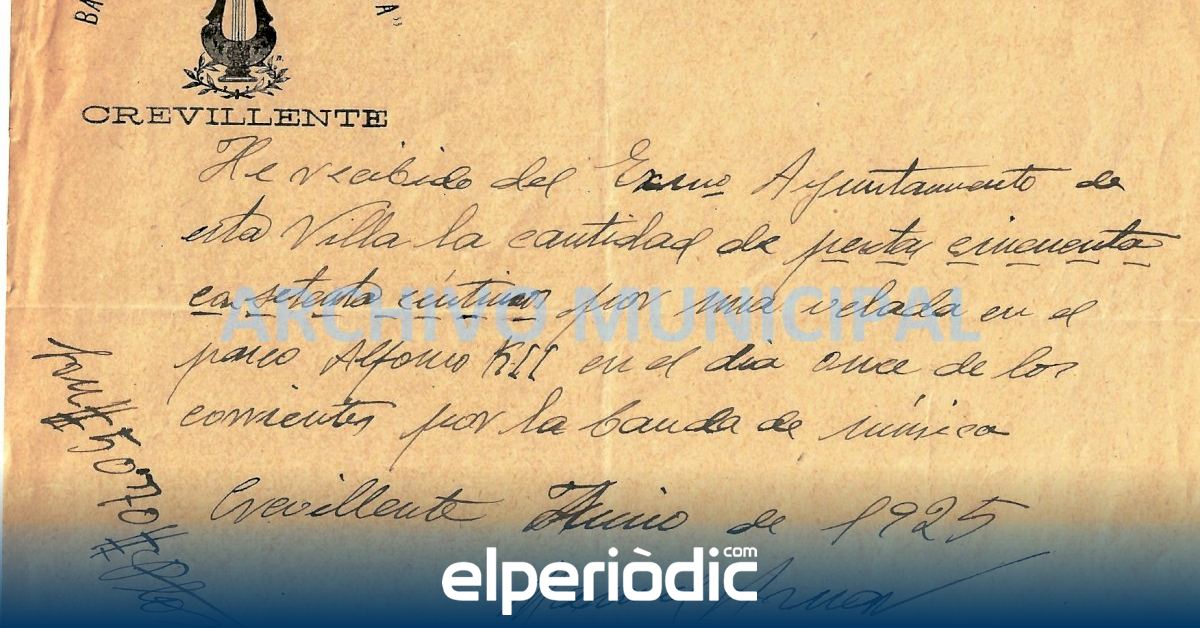 BA A"
CREVILLENTE
He recibido del Exmo Ayuntamiento de
esta Villa la cantidad de pesetas cincuenta
con setenta céntimos por una velada en el
paseo Alfonso XII en el dia once de los
corrientes por la banda de música
Crevillente Junio de 1925
ARCHIVO MUNICIPAL
#50,70#
elperiòdic.com